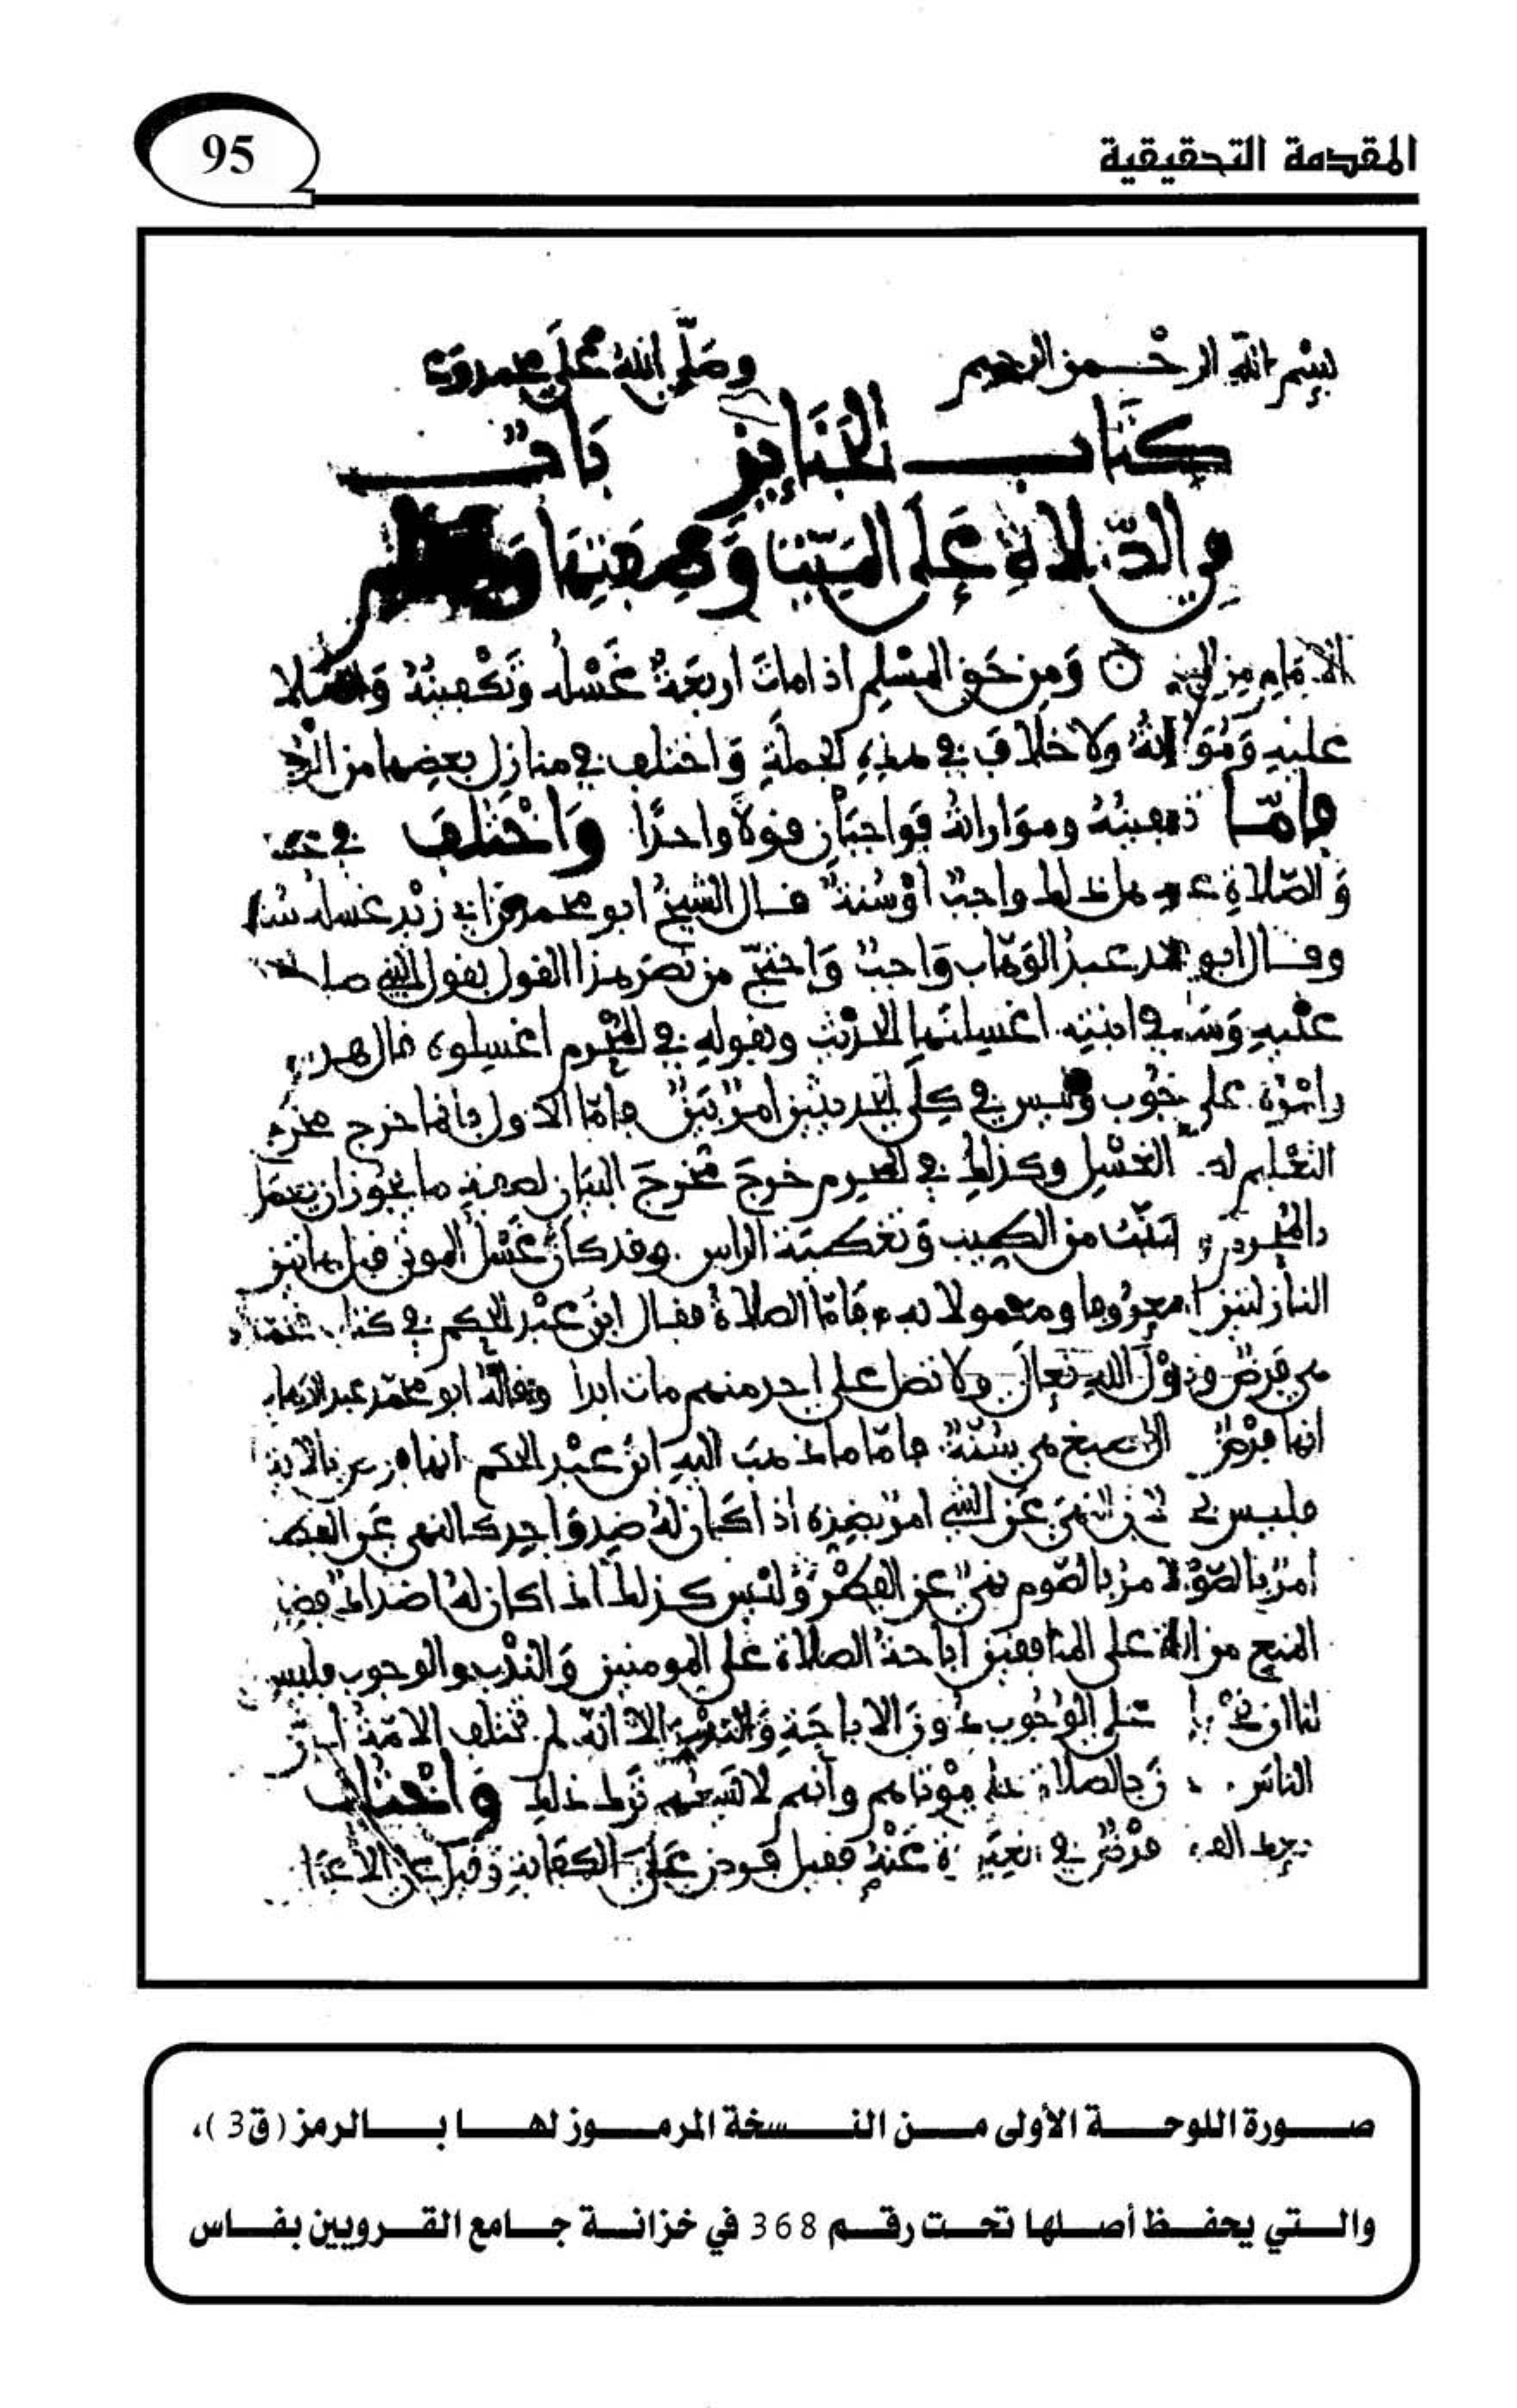 المقدمة التحقيقية
95
بسم الله الرحمن الرحيم وصلى الله على محمد
كتاب الجنايز باب
في الصلاة على الميت وصفتها
الامام من الميت ومن حق المسلم اذا مات اربعة غسله وتكفينه والصلاة
عليه ومواراته ولا خلاف في هذه الجملة واختلف في منازل بعضها من
فاما تكفينه ومواراته فواجبان قولا واحدا واختلف في
والصلاة هل ذلك واجب او سنة فقال الشيخ ابو محمد بن ابي زيد غسله سنة
وقال ابو محمد عبد الوهاب واجب واحتج من نصر هذا القول بقول النبي صلى الله
عليه وسلم في ابنته اغسلنها الحديث وبقوله في المحرم اغسلوه قال
وليس في كلى الحديثين امر بين فاما الاول فانما خرج مخرج
التعليم الغسل وكذلك في المحرم خرج مخرج البيان لصفة ما يجوز ان يعمل
بالمحرم من الطيب وتغطية الراس وقد كان غسل الموتى قبل هاتين
النازلتين معروفا ومعمولا به فاما الصلاة فقال ابن عبد الحكم في كتاب
هي فرض وقول الله تعالى ولا تصل على احد منهم مات ابدا وقاله ابو محمد عبد الوهاب
انها فرض اصبغ هي سنة فاما ما ذهب اليه ابن عبد الحكم انها فرض بالاية
فليس النهي عن الشي امر بضده اذا كان له ضد واحد كالنهي عن الفطر
امر بالصوم والامر بالصوم نهي عن الفطر وليس كذلك اذا كان له اضداد فضد
المنع من الصلاة على المنافقين اباحة الصلاة على المومنين والندب والوجوب فليس
لنا ان على الوجوب دون الاباحة والندب الا انه لم تختلف الامة ان
الناس بالصلاة على موتاهم وانهم لا يسعهم ترك ذلك واختلف
فرض في عنه فقيل فرض على الكفاية وقيل
صورة اللوحة الأولى من النسخة المرموز لها بالرمز (ق3)،
والتي يحفظ أصلها تحت رقم 368 في خزانة جامع القرويين بفاس